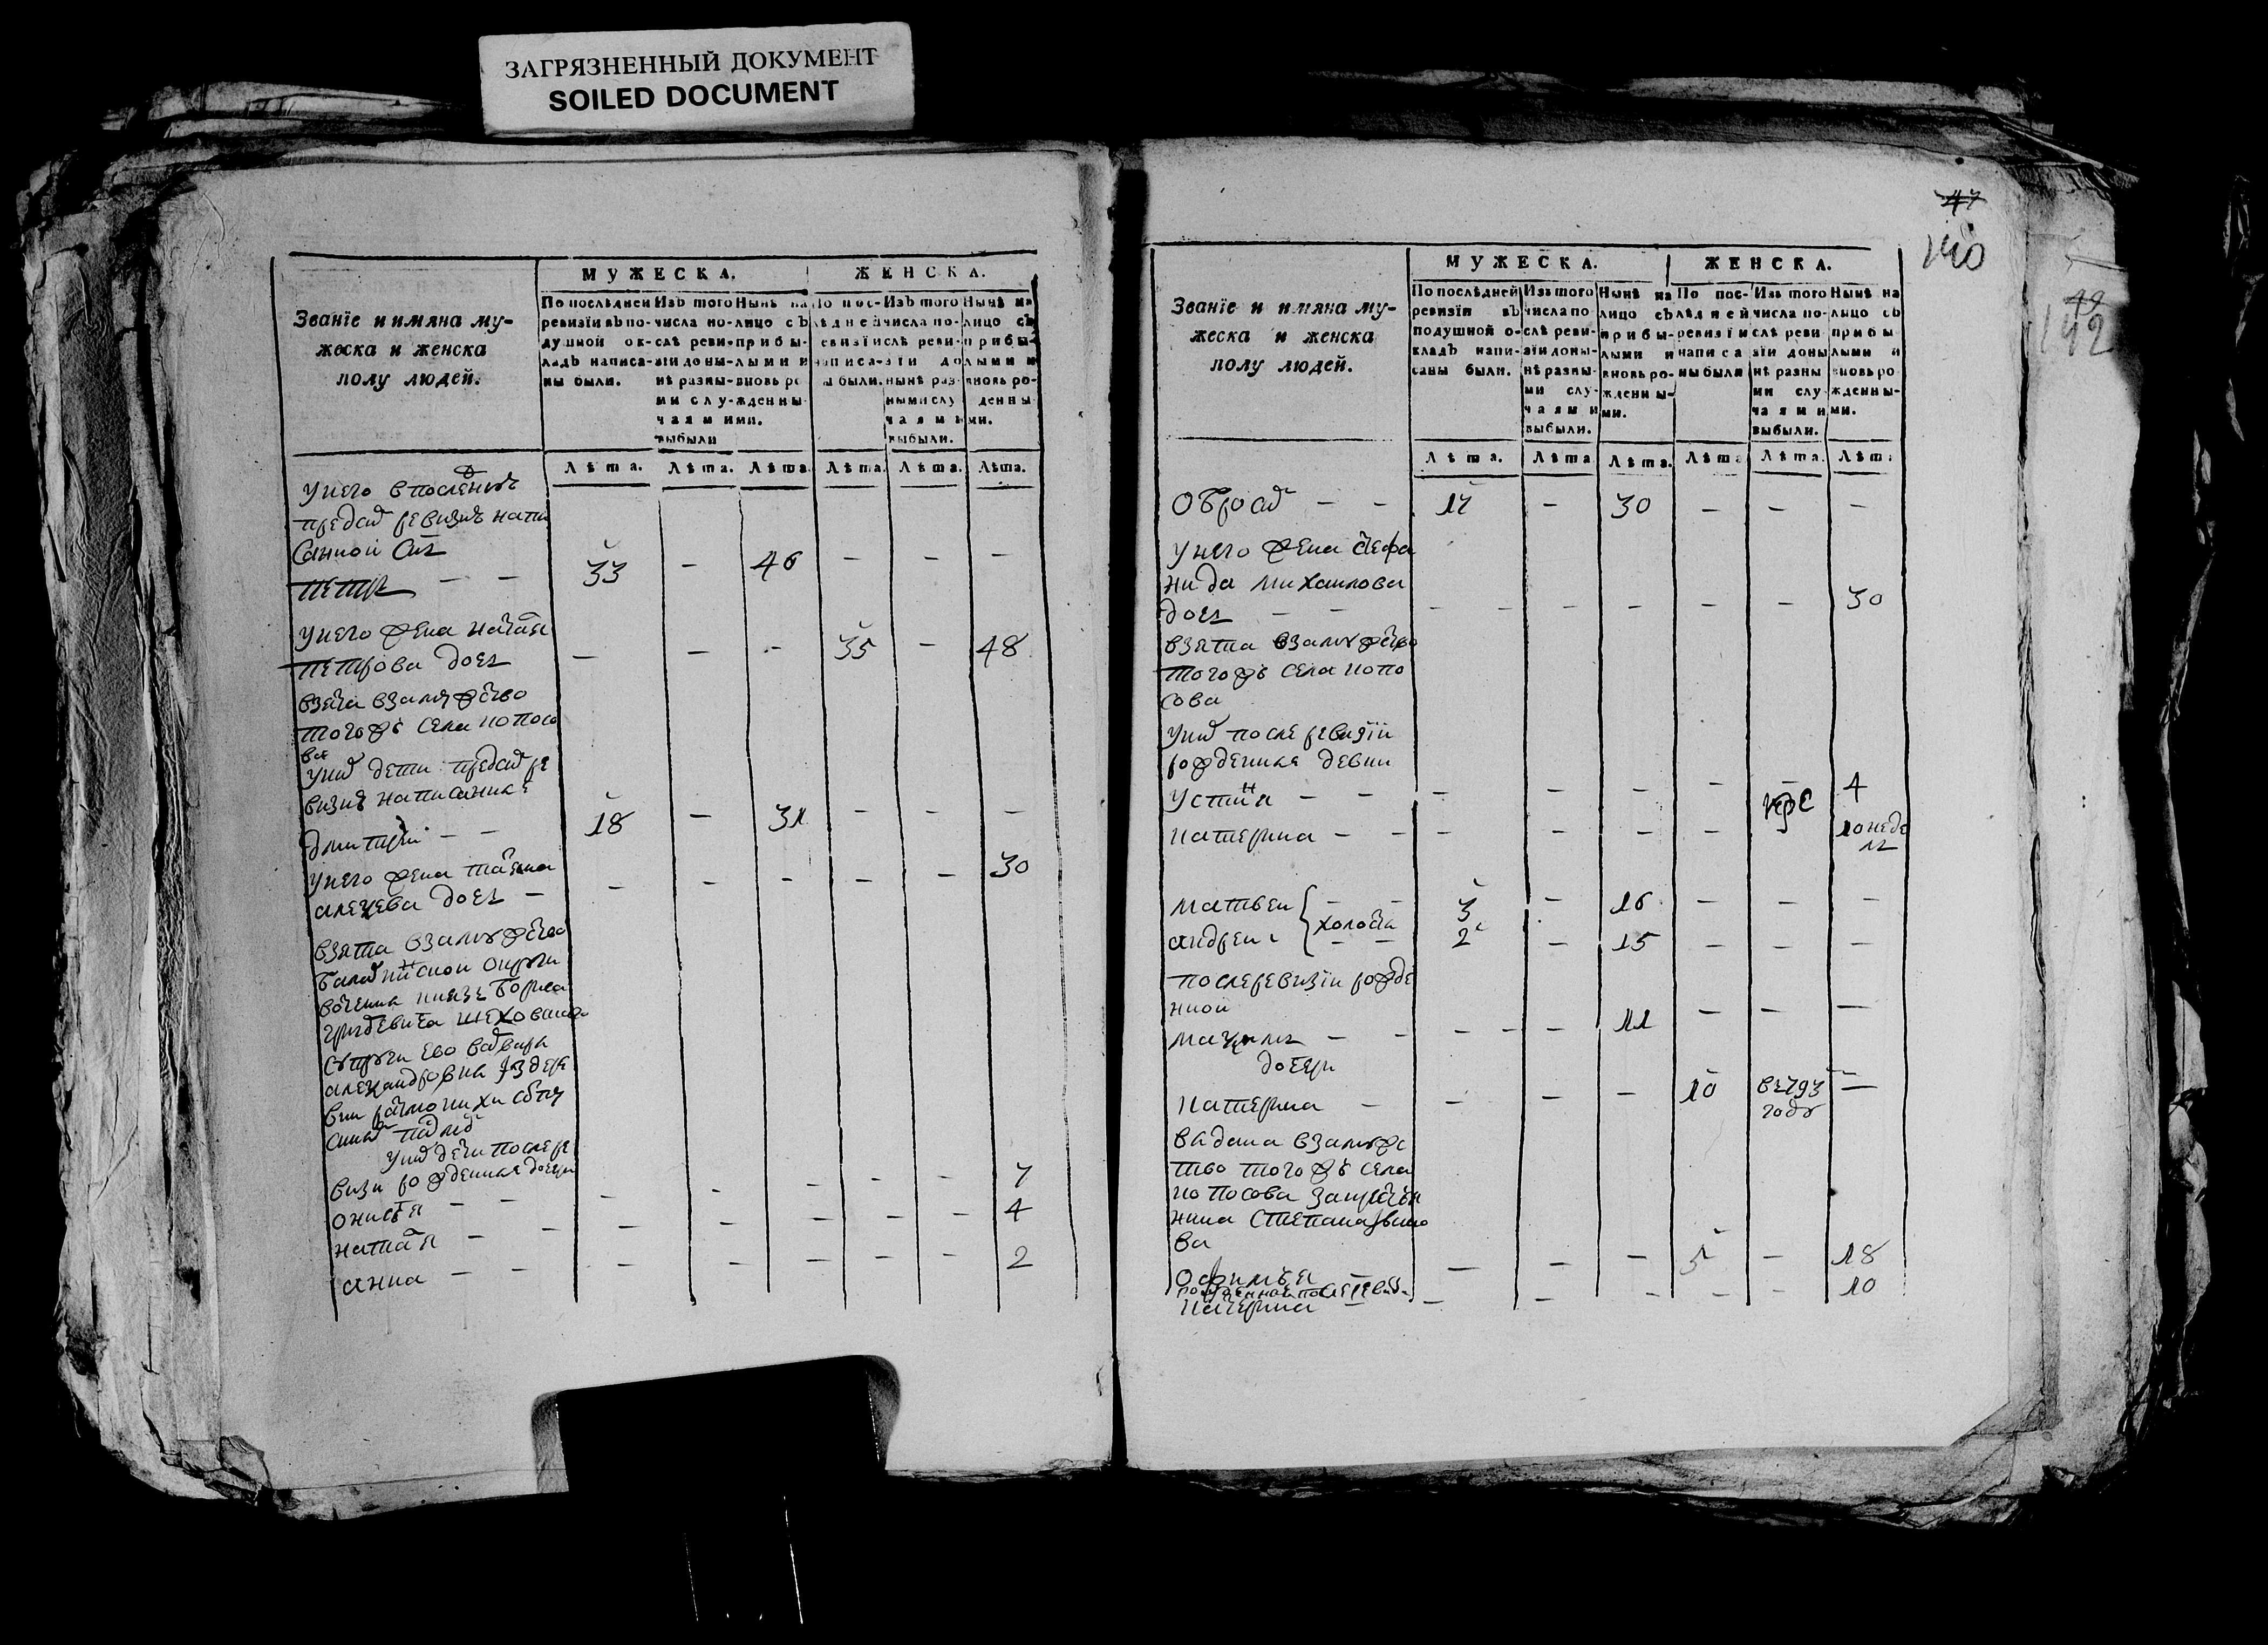 ЗАГРЯЗНЕННЫЙ ДОКУМЕНТ
SOILED DOCUMENT
МУЖЕСКА. ЖЕНСКА.
Званїе и имяна му-
жеска и женска
полу людей.
По послѣдней
ревизїи въ по-
душной ок-
ладъ написа-
ны были.
Изъ того
числа по-
слѣ реви-
зїи доны-
нѣ разны-
ми слу-
чаями
выбыли
Нынѣ на
лицо съ
прибы-
лыми и
вновь ро
жденны-
ми.
По пос-
лѣдней
ревизїи
написа-
ны были.
Изъ того
числа по-
слѣ реви-
зїи до
нынѣ раз-
ными слу
чаями
выбыли.
Нынѣ на
лицо съ
прибы-
лыми и
вновь ро-
жденны-
ми.
Лѣта. Лѣта. Лѣта. Лѣта. Лѣта. Лѣта.
у него в последней
пред сей ревизие напи
санной сын
петръ — — 33 — 46 — — —
у него жена наталя
петрова дочь — — — 35 — 48
взята взамужство
тогожъ села копосо
ва
у них дети пред сей ре
визие написанные
дмитрей — — 18 — 31 — — —
у него жена татьяна
алексева дочь — — — — — — 30
взята взамужство
округи
вотчины князе бориса
григоревича шеховскова
супруги ево варвары
александровны из дере
вни
у них дети после ре
визи рожденные дочери
онисья — — — — — — 7
наталя — — — — — — 4
анна — — — — — — — 2
47
140
49
142
МУЖЕСКА. ЖЕНСКА.
Званїе и имяна му-
жеска и женска
полу людей.
По послѣдней
ревизїи въ
подушной о-
кладъ напи-
саны были.
Изъ того
числа по
слѣ реви-
зїи доны-
нѣ разны-
ми слу-
чаями
выбыли.
Нынѣ на
лицо съ
прибы-
лыми и
вновь ро-
жденны-
ми.
По пос-
лѣдней
ревизїи
написа
ны были
Изъ того
числа по-
слѣ реви
зїи доны
нѣ разны
ми слу-
чаями
выбыли.
Нынѣ на
лицо съ
прибы
лыми и
вновь ро
жденны-
ми.
Лѣта. Лѣта Лѣта. Лѣта Лѣта. Лѣта
— — 17 — 30 — — —
у него жена стефа
нида михаилова
дочь — — — — — — — — 30
взята взамужство
тогожъ села копо
сова
у них после ревизїи
рожденные девки
устинья — — — — — — 4
катерина — — — — — — 10 неде
ль
матвеи — — 3 — 16 — — —
холосты
андреи — — 2 — 15 — — —
после ревизїи рожде
нной
максимъ — — — — — 11 — — —
дочери
катерина — — — — 10 —
году
выдана взамужс
тво тогожъ села
копосова за крестья
нина степана ивано
ва
офимья — — — — 5 — 18
рожденная после ревизи
катерина — — — — — — 10